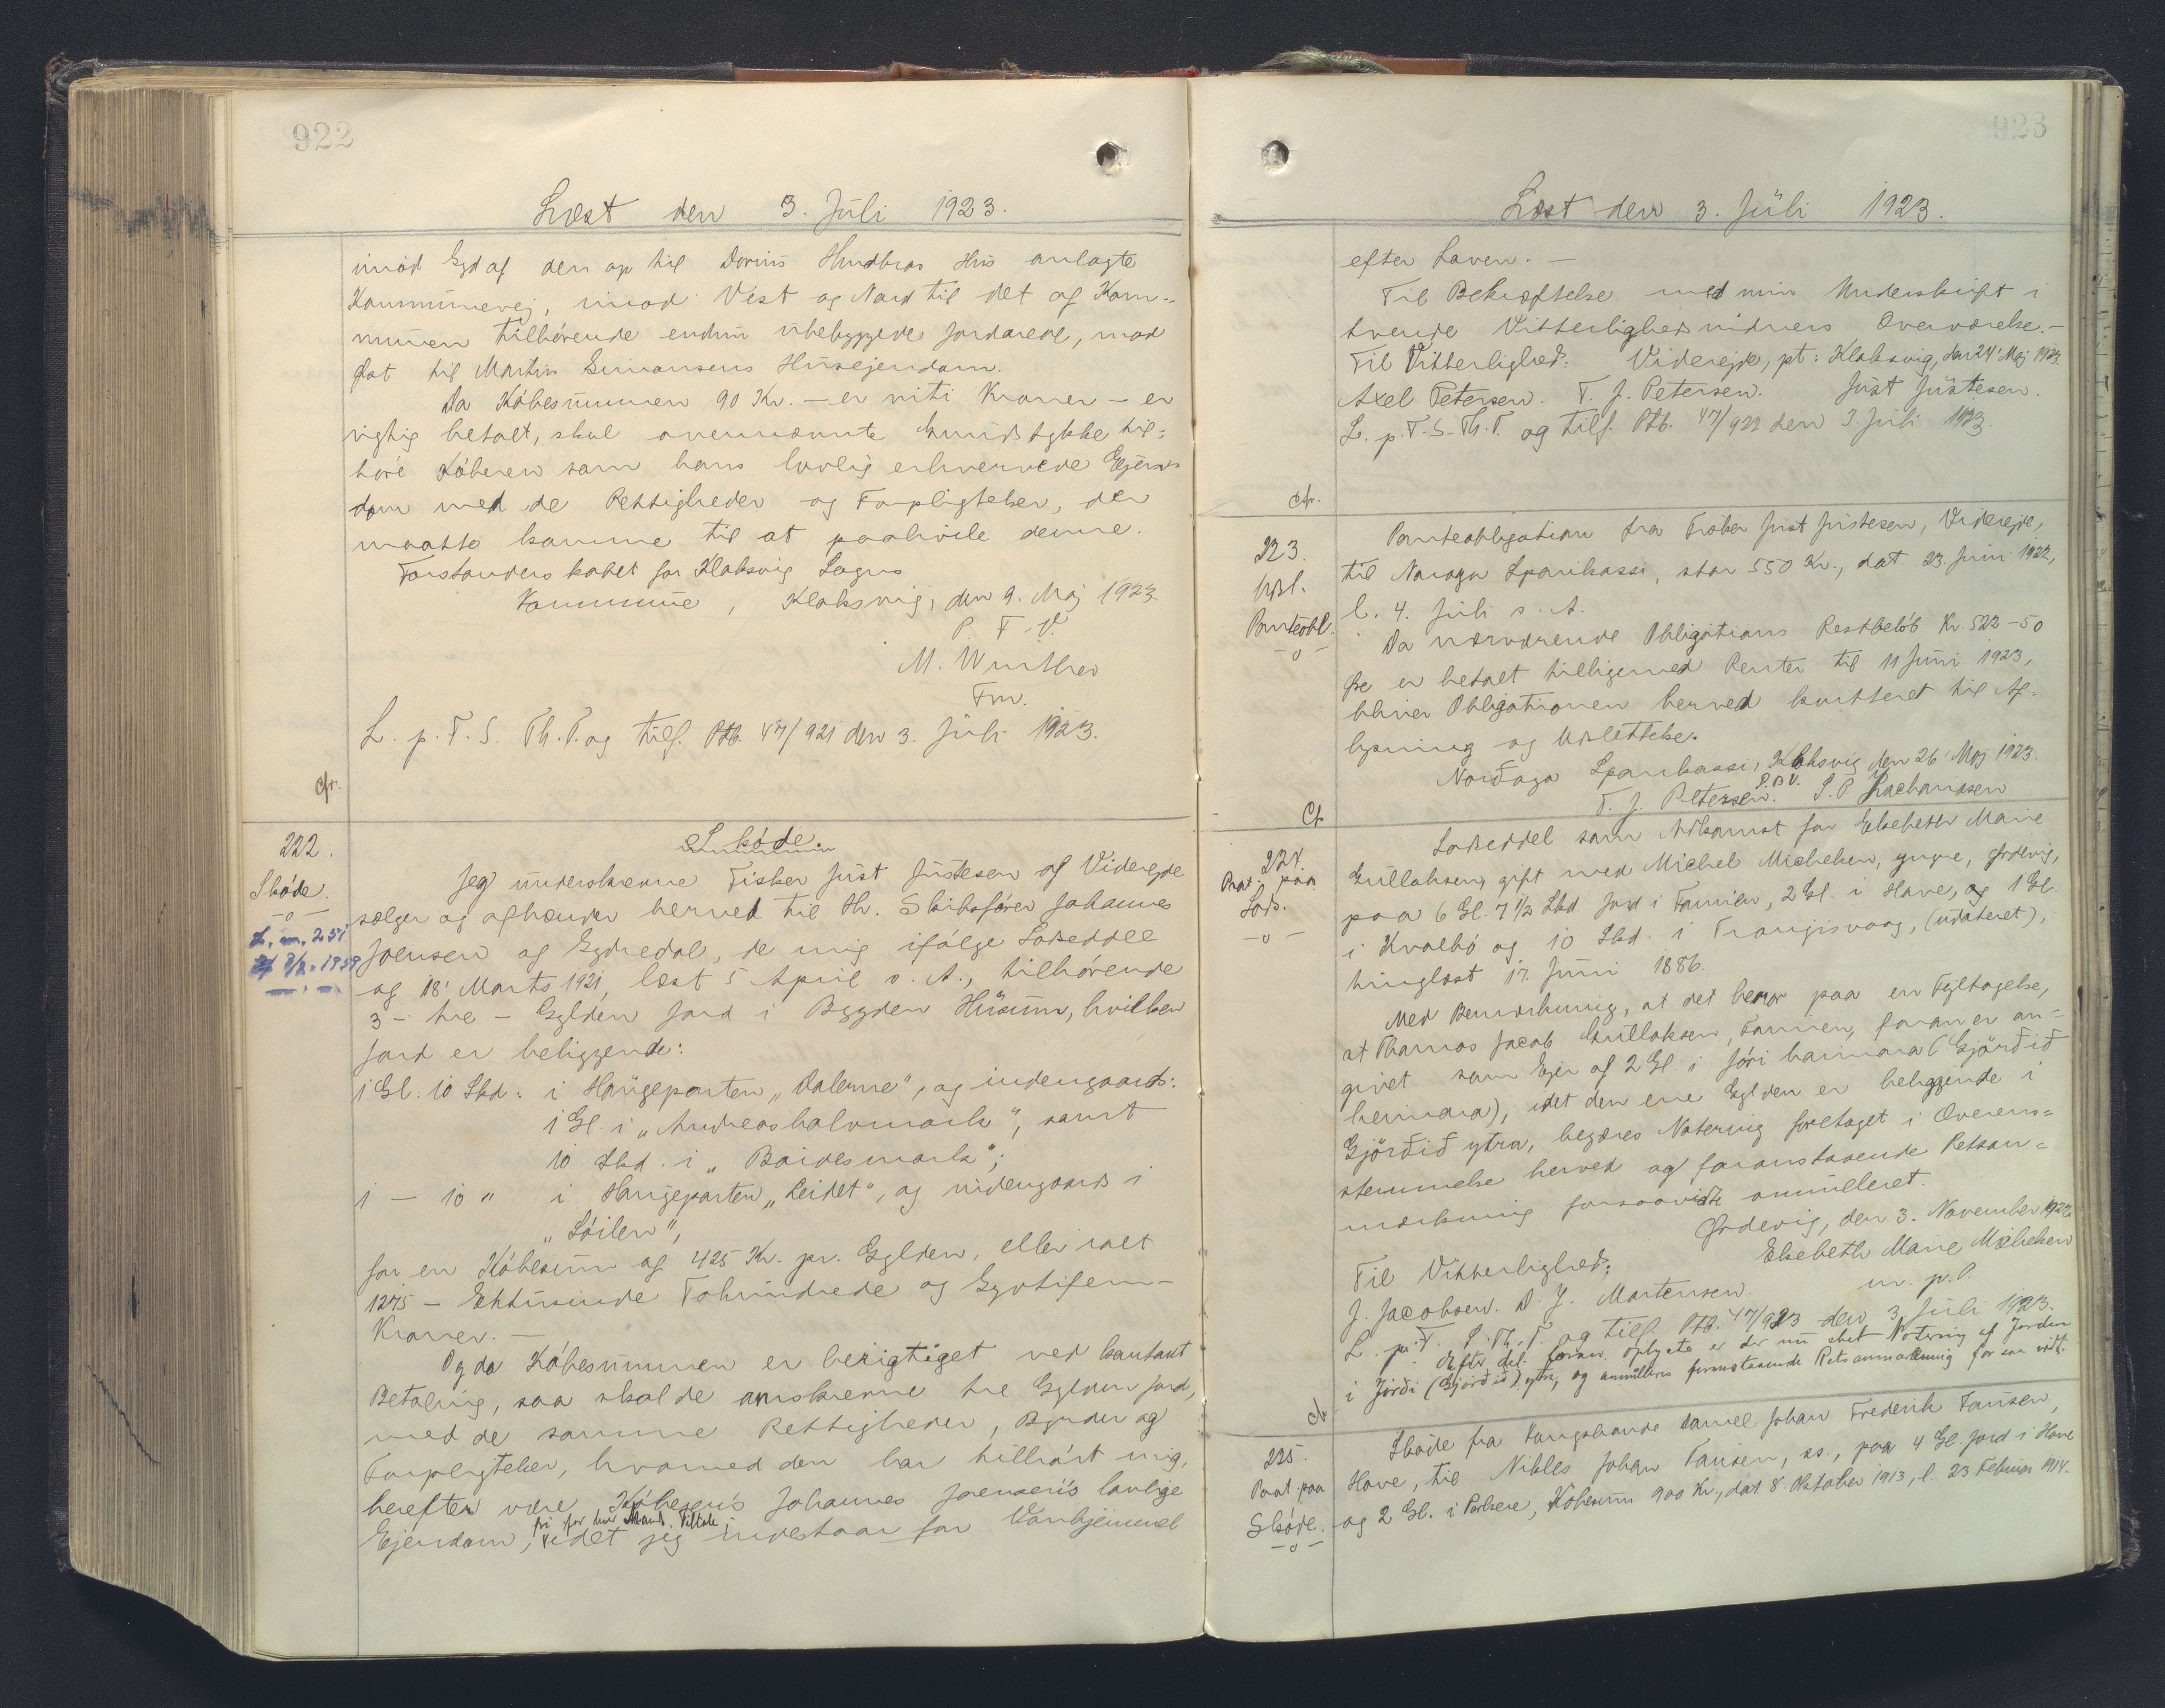 922
Læst den 3. Juli 1923.
imod Syd af den op til Dorius Hus anlagte
Kommunevej, imod Vest og Nord til det af Kom-
munen tilhörende endnu übebyggede Jordareal, mod
Öst til Martin Simonsens Husejendom.
Da Köbesummen 90 Kr. - er niti Kroner - er
rigtig betalt, skal ovennævnte Grundstykke til-
höre Köberen som hans lovlig erhvervede Ejen-
dom med de Rettigheder og Forpligtelser, der
maatte komme til at paahvile denne.
Forstanderskabet for Klaksvig Sogns
Kommune, Klaksvig, den 9. Maj 1923.
P. F. V.
M. Winther
Fm.
L. p. F. S. Th. T. og tilf. Ptb. 47/921 den 3. Juli 1923.
cfr.
222.
Sköde.
-o-
L. m. 251
Sköde.
Jeg underskrevne Fisker Just Justesen af Viderejde
sælger og afhænder herved til Hr. Skibsförer Johannes
Joensen af Sydredal, de mig ifölge Lodseddel
af 18' Marts 1921, læst 5 April s. A., tilhörende
3 - tre - Gylden Jord i Bygden Husum, hvilken
Jord er beliggende:
1 Gl. 10 Skd. i Haugeparten „Dalerne", og indengaards:
1 Gl. i „Andreashalvmark", samt
10 Skd. i „Boidesmark";
1 - 10 " i Haugeparten „Leidet", og indengaards i
„Löilen",
for en Köbesum af 425 Kr. pr. Gylden, eller ialt
1275 - Ettusinde Tohundrede og Syvtifem -
Kroner. -
Og da Köbesummen er berigtiget ved kontant
Betaling, saa skal de omskrevne tre Gylden Jord,
med de samme Rettigheder, Byrder og
Forpligtelser, hvormed den har tilhört mig,
herefter være Köberens Johannes Joensen's lovlige
fri for hver Mands Tiltale
Ejendom, idet jeg indestaar for Vanhjemmel
923
Læst den 3. Juli 1923.
efter Loven. -
Til Bekræftelse med min Underskrift i
tvende Vitterlighedsvidners Overværelse. -
Til Vitterlighed: Viderejde, pt: Klaksvig, den 24' Maj 1923.
Axel Petersen. T. J. Petersen. Just Justesen.
L. p. F. S. Th. T. og tilf. Ptb. 47/922 den 3. Juli 1923.
cfr.
223.
Udsl.
Panteobl.
-o-
Panteobligation fra Fisker Just Justesen, Viderejde,
til Noroya Sparikassi, stor 550 Kr., dat. 23. Juni 1922,
l. 4. Juli s. A.
Da nærværende Obligations Restbelöb Kr. 522-50
Öre er betalt tilligemed Renter til 11 Juni 1923,
bliver Obligationen herved kvitteret til Af-
lysning og Udslettelse.
Norðoya Sparikassi, Klaksvig den 26' Maj 1923.
P.B.V.
T. J. Petersen. S. P. Zachariasen
Cfr.
224.
Paat. paa
Lods.
-o-
Lodseddel som Adkomst for Elsebeth Marie
Gullaksen, gift med Michel Michelsen, yngre, Ördevig,
paa 6 Gl. 7 1/2 Skd. Jord i Famien, 2 Gl. i Hove, og 1 Gl.
i Kvalbö og 10 Skd. i Trangisvaag, (udateret),
tinglæst 17. Juni 1886.
Med Bemærkning, at det beror paa en Fejltagelse,
at Thomas Jacob Gullaksen, Famien, foran er an-
givet som Ejer af 2 Gl. i Jöri heimara (Gjörðið
heimara), idet den ene Gylden er beliggende i
Gjörðið ytra, begæres Notering foretaget i Overens-
stemmelse herved og foranstaaende Retsan-
mærkning forsaavidt annulleret.
Ördevig, den 3. November 1922.
Til Vitterlighed: Elsebeth Marie Michelsen
J. Jacobsen. D. J. Mortensen. m. p. P.
L. p. F. S. Th. T. og tilf. Ptb. 47/923 den 3 Juli 1923.
Efter det foran oplyste er der nu sket Notering af Jorden
i Jörði (Gjörðið) ytra, og annulleres foranstaaende Retsanmærkning for saa vidt.
cfr.
225.
Paat. paa
Sköde.
-o-
Sköde fra Kongsbonde Daniel Johan Frederik Tausen,
Hove, til Niklas Johan Tausen, ss., paa 4 Gl. Jord i Hove
og 2 Gl. i Porkere, Köbesum 900 Kr., dat 8. Oktober 1913, l. 23 Februar 1914.